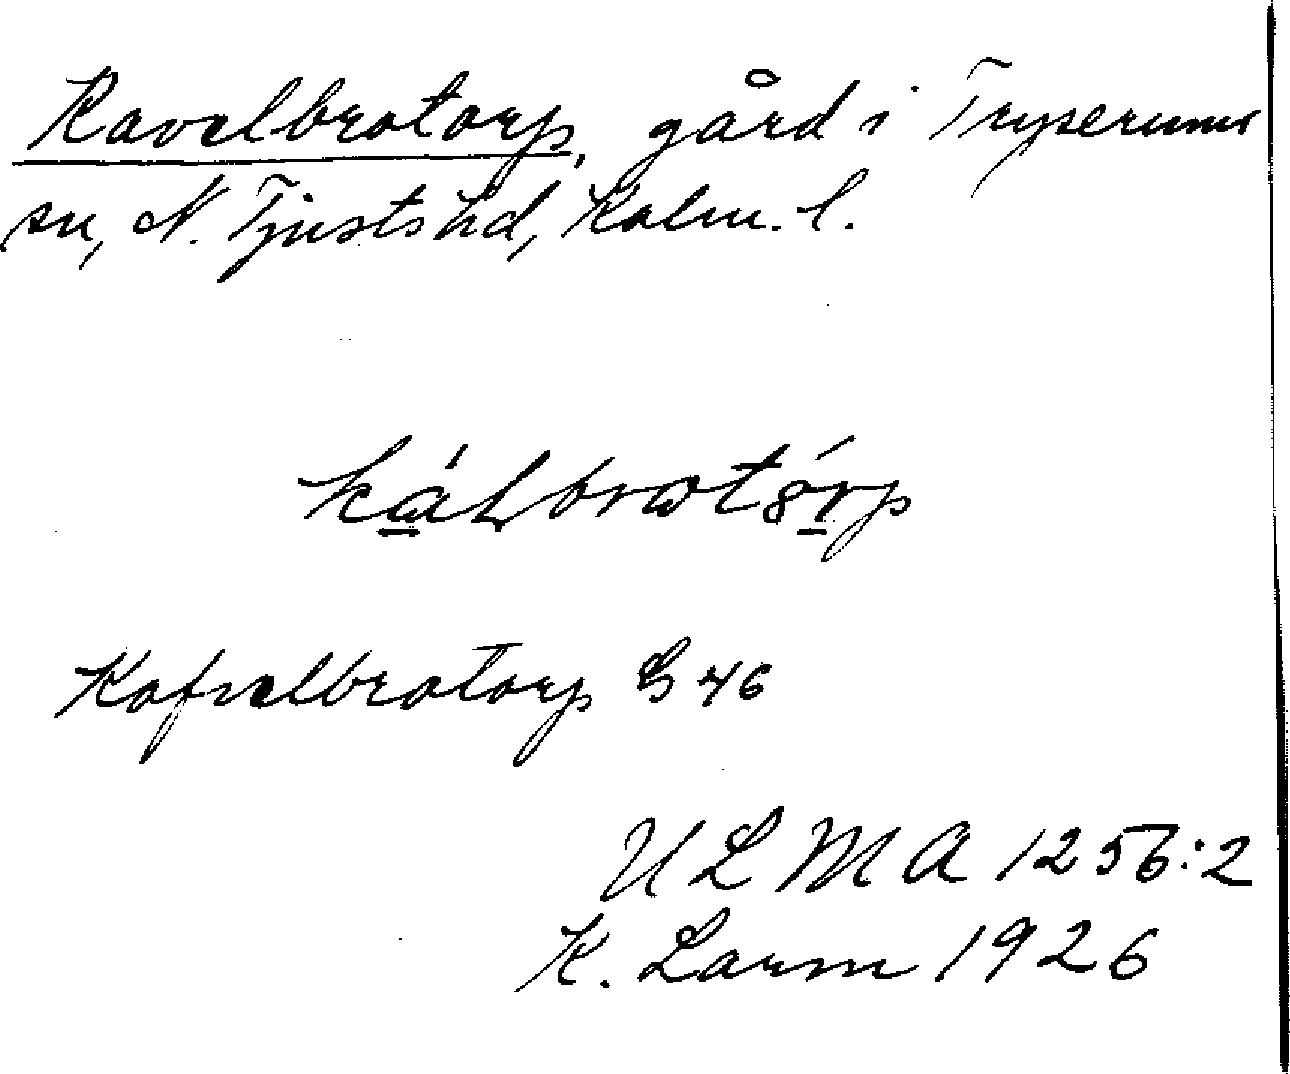 Kavelbrotorp, gård i Tryserums
sn, N. Tjusts hd, Kalm. l.
Kafvelbrotorp S 46
ULMA 1256:2
K. Larm 1926